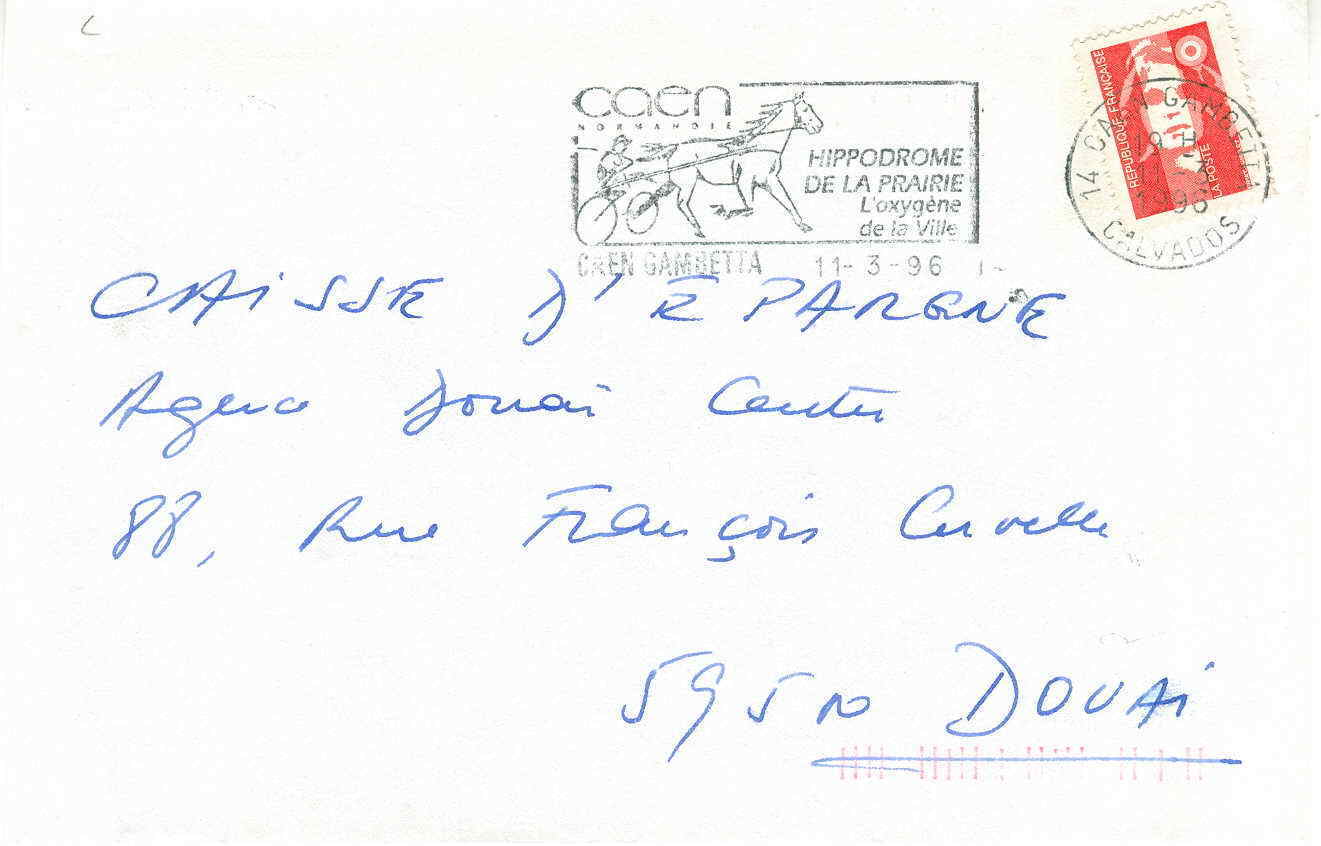 caen
NORMANDIE
HIPPODROME
DE LA PRAIRIE
L'oxygène
de la Ville
CAEN GAMBETTA 11-3-96
RÉPUBLIQUE FRANÇAISE
LA POSTE
14 CAEN GAMBETTA
19 H
1996
CALVADOS
CAISSE D'ÉPARGNE
Agence Douai Centre
88, Rue François Cuvelle
59500 DOUAI